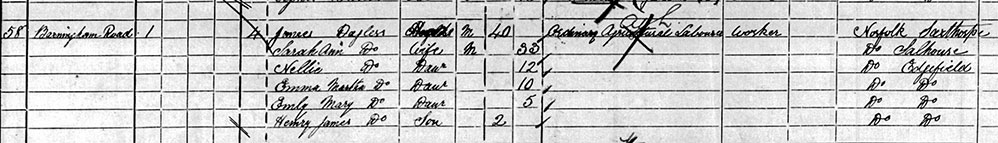 58 Barningham Road 1 4 James Dagless Head M 40 Ordinary Agricultural Labourer Worker Norfolk Saxthorpe
Sarah Ann Do Wife M 33 Do Salhouse
Nellie Do Daur 12 Do Edgefield
Emma Martha Do Daur 10 Do Do
Emly Mary Do Daur 5 Do Do
Henry James Do Son 2 Do Do